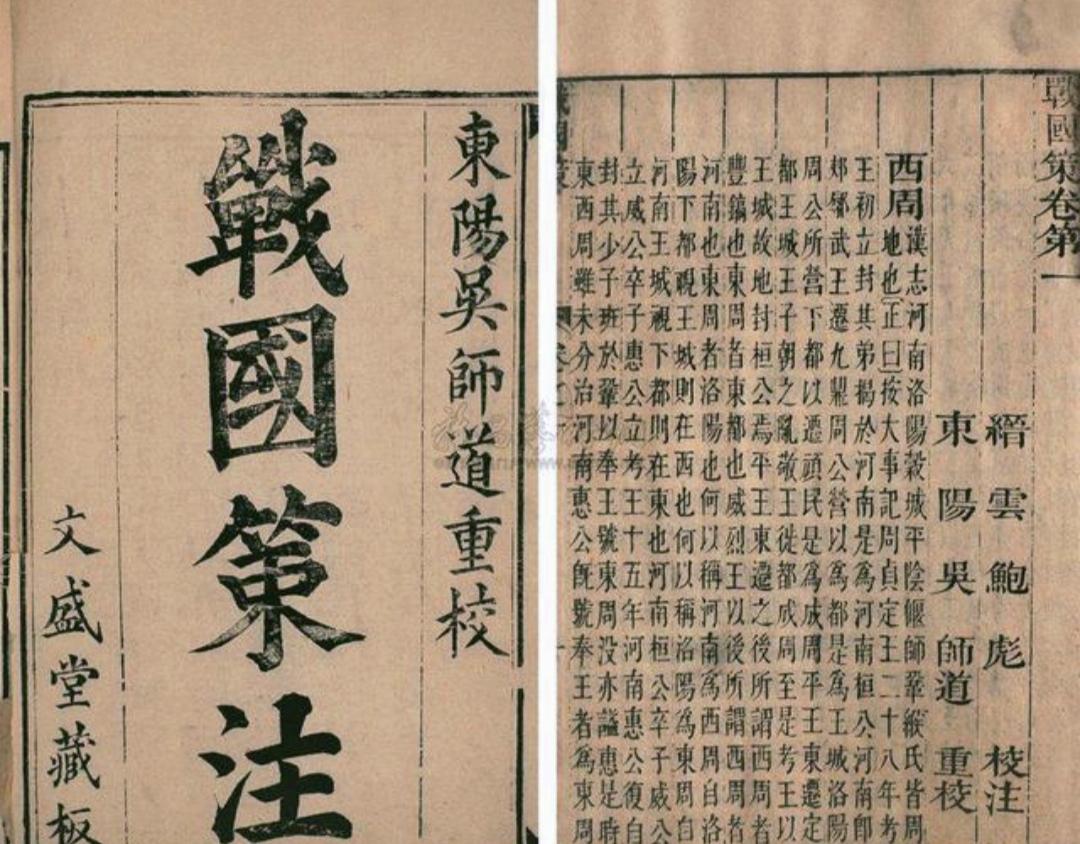 東陽吳師道重校
戰國策注
文盛堂藏板
戰國策卷第一
縉雲鮑彪校注
東陽吳師道重校
西周漢志河南洛陽榖城平陰偃師鞏緱氏皆周
地也正曰按大事記周貞定王二十八年考
王初立封其弟揭於河南是為河南桓公河南即
郟鄏武王遷九鼎周公營以為都是為王城洛陽
周公所營下都以遷頑民是為成周平王東遷定
都王城王子朝之亂敬王徙都成周至是考王以
王城故地封桓公焉平王東遷之後所謂西周者
豐鎬也東周者東都也威烈王以後所謂西周者
河南也東周者洛陽也何以稱河南為西周自洛
陽下都視王城則在西也何以稱洛陽為東周自
河南王城視下都則在東也河南桓公卒子威公
立威公卒子惠公立考王十五年河南惠公復自
封其少子班於鞏以奉王號東周没亦諡惠是時
東西周雖未分治河南惠公既號奉王者為東周